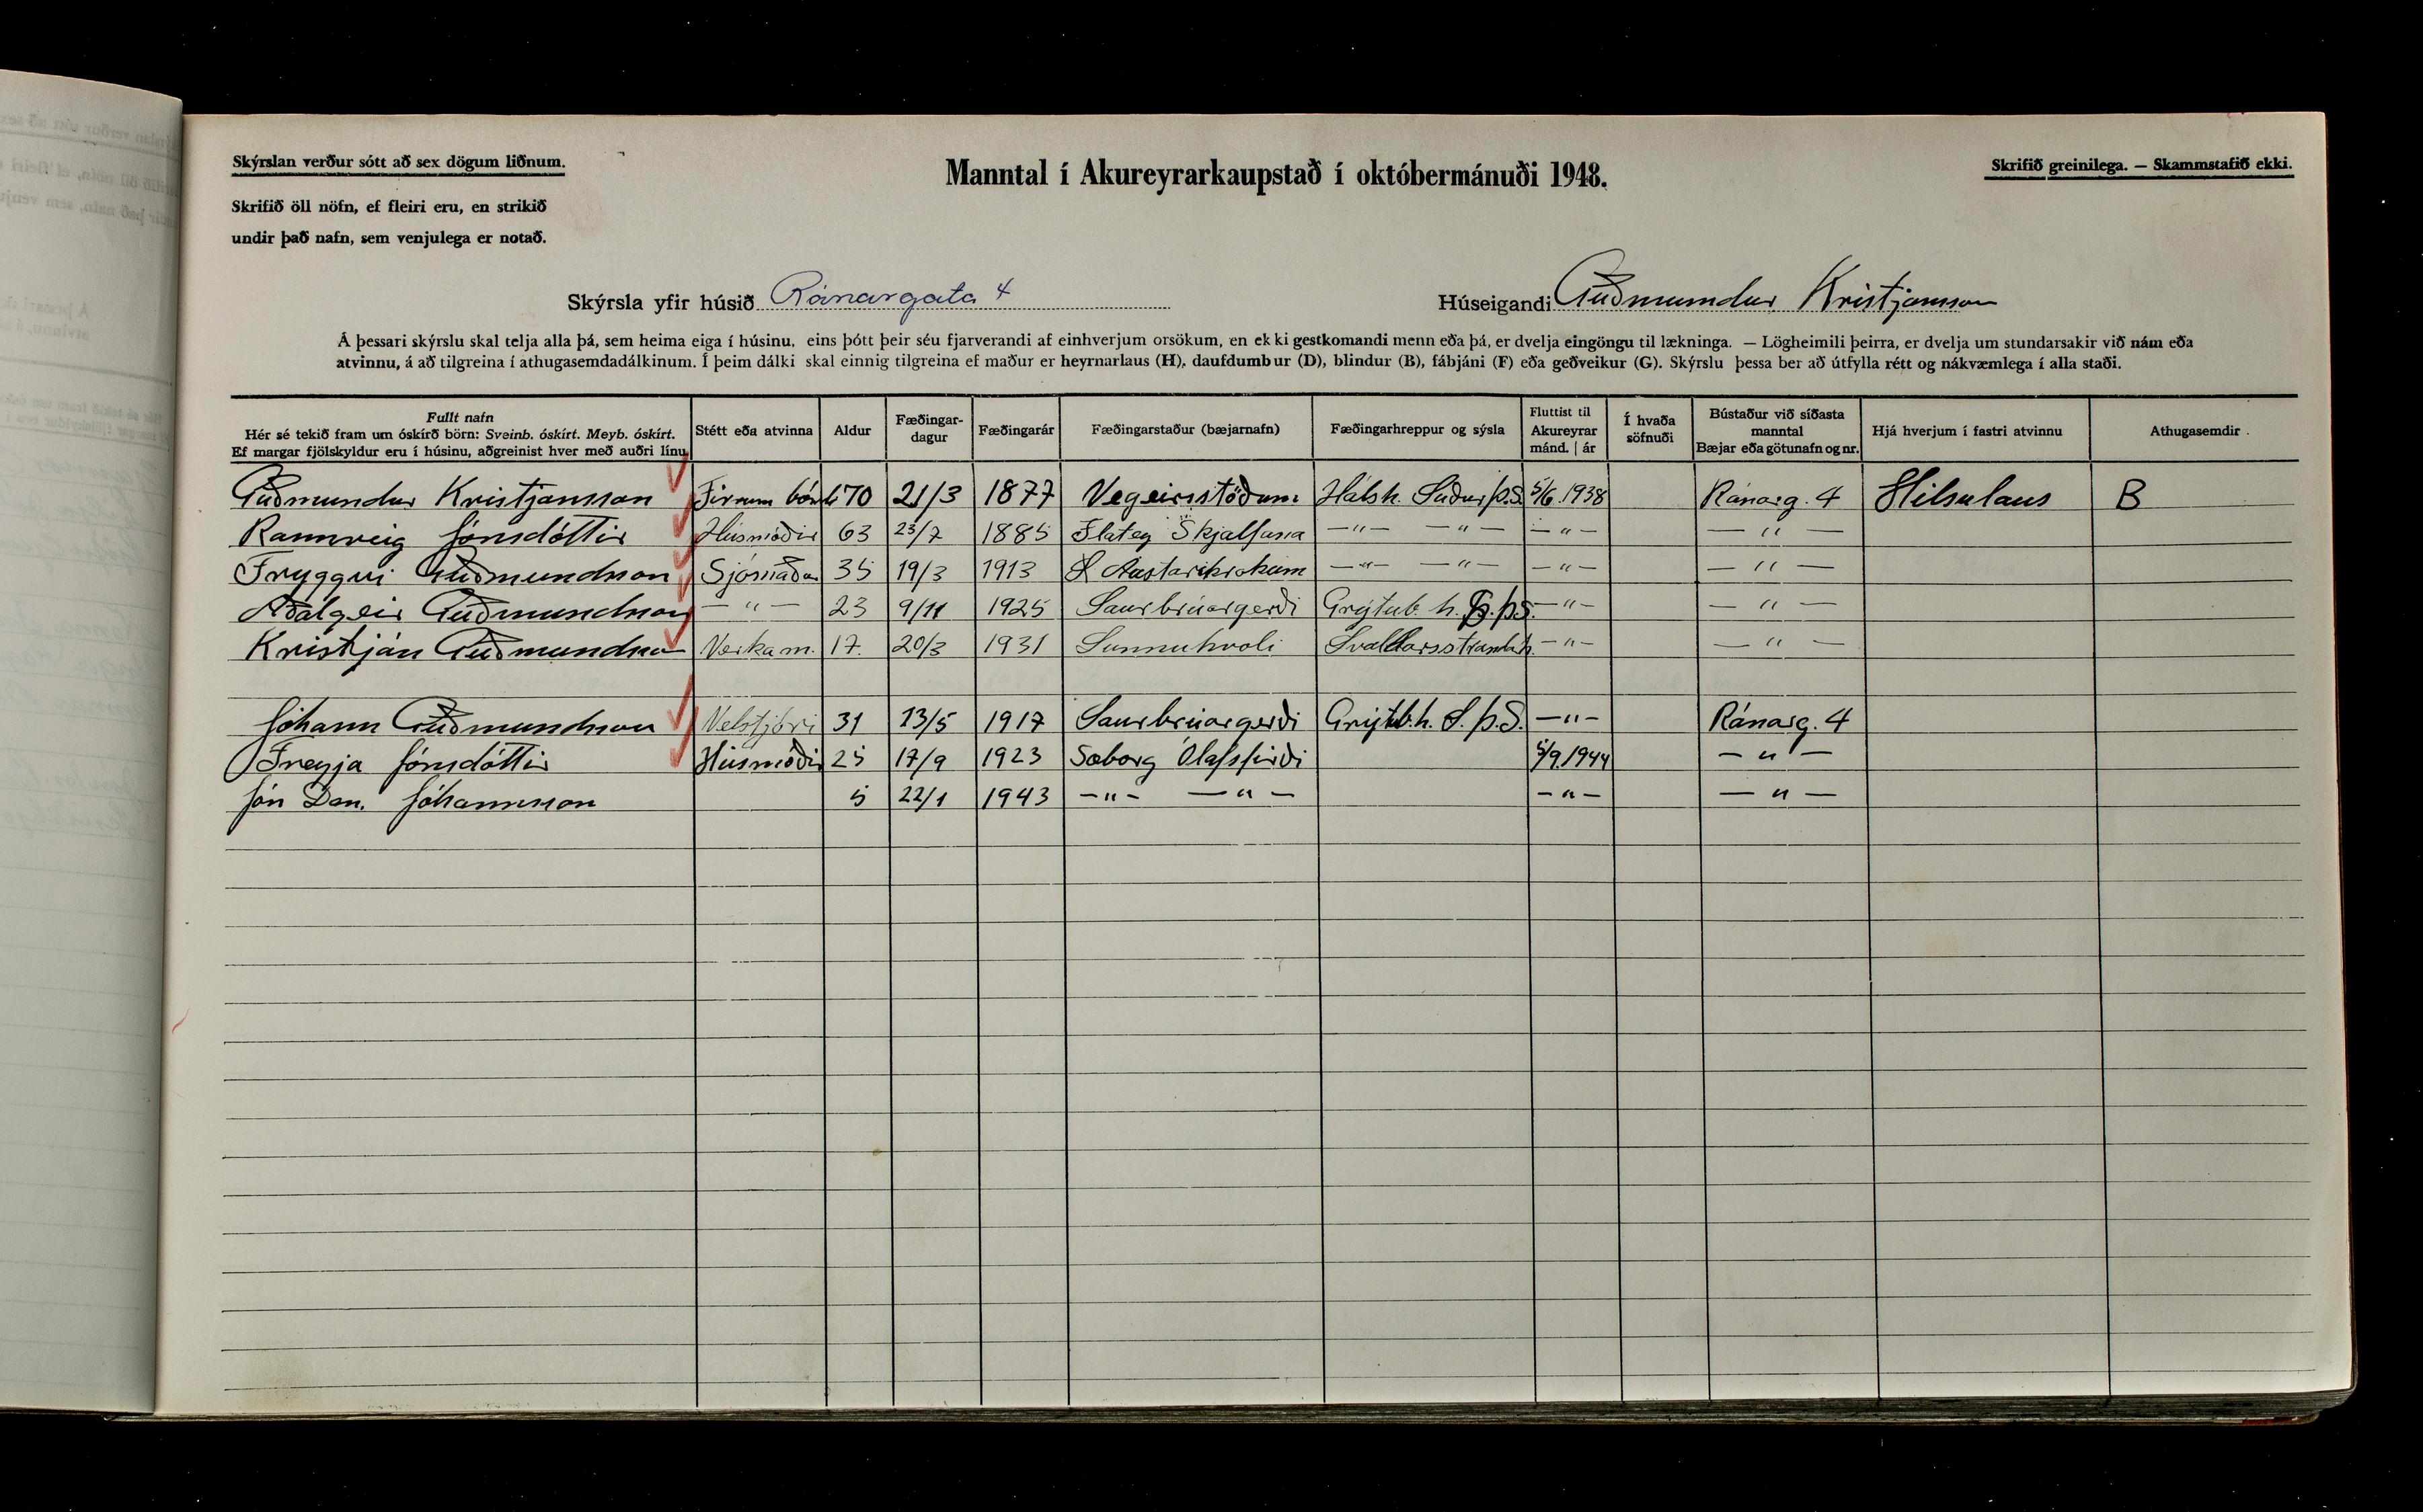 Skýrslan verður sótt að sex dögum liðnum.
Skrifið öll nöfn, ef fleiri eru, en strikið
undir það nafn, sem venjulega er notað.
Manntal í Akureyrarkaupstað í októbermánuði 1948.
Skrifið greinilega. — Skammstafið ekki.
Skýrsla yfir húsið Ránargata 4
Húseigandi Guðmundur Kristjansson
Á þessari skýrslu skal telja alla þá, sem heima eiga í húsinu, eins þótt þeir séu fjarverandi af einhverjum orsökum, en ekki gestkomandi menn eða þá, er dvelja eingöngu til lækninga. — Lögheimili þeirra, er dvelja um stundarsakir við nám eða
atvinnu, á að tilgreina í athugasemdadálkinum. Í þeim dálki skal einnig tilgreina ef maður er heyrnarlaus (H), daufdumbur (D), blindur (B), fábjáni (F) eða geðveikur (G). Skýrslu þessa ber að útfylla rétt og nákvæmlega í alla staði.
Fullt nafn
Hér sé tekið fram um óskírð börn: Sveinb. óskírt. Meyb. óskírt.
Ef margar fjölskyldur eru í húsinu, aðgreinist hver með auðri línu.
Stétt eða atvinna
Aldur
Fæðingar-
dagur
Fæðingarár
Fæðingarstaður (bæjarnafn)
Fæðingarhreppur og sýsla
Fluttist til
Akureyrar
mánd. | ár
Í hvaða
söfnuði
Bústaður við síðasta
manntal
Bæjar eða götunafn og nr.
Hjá hverjum í fastri atvinnu
Athugasemdir
Guðmundur Kristjansson 70 21/3 1877 Vegeirsstöðum Hálsh. Suður þ.S. 5/6 1938 Ránarg. 4 Hilsulaus B
Rannveig Jónsdóttir Húsmóðir 63 23/7 1885 Flatey Skjalfana —"— —"— —"— —"—
Tryggvi Guðmundsson Sjómaður 35 19/3 1913 —"— —"— —"— —"—
Aðalgeir Guðmundsson —"— 23 9/11 1925 Saurbrúargerði Grýtub. h. þ.S. —"— —"—
Kristján Guðmundsson Verkam. 17. 20/3 1931 Sunnuhvoli Svalbarsstrandh. —"— —"—
Jóhann Guðmundsson Velstjóri 31 13/5 1917 Saurbrúargerði Grýtub.h. S. þ.S. —"— Ránarg. 4
Freyja Jónsdóttir Húsmóðir 25 17/9 1923 Sæborg Ólafsfirði 5/9 1944 —"—
Jón Dan. Jóhannsson 5 22/1 1943 —"— —"— —"— —"—